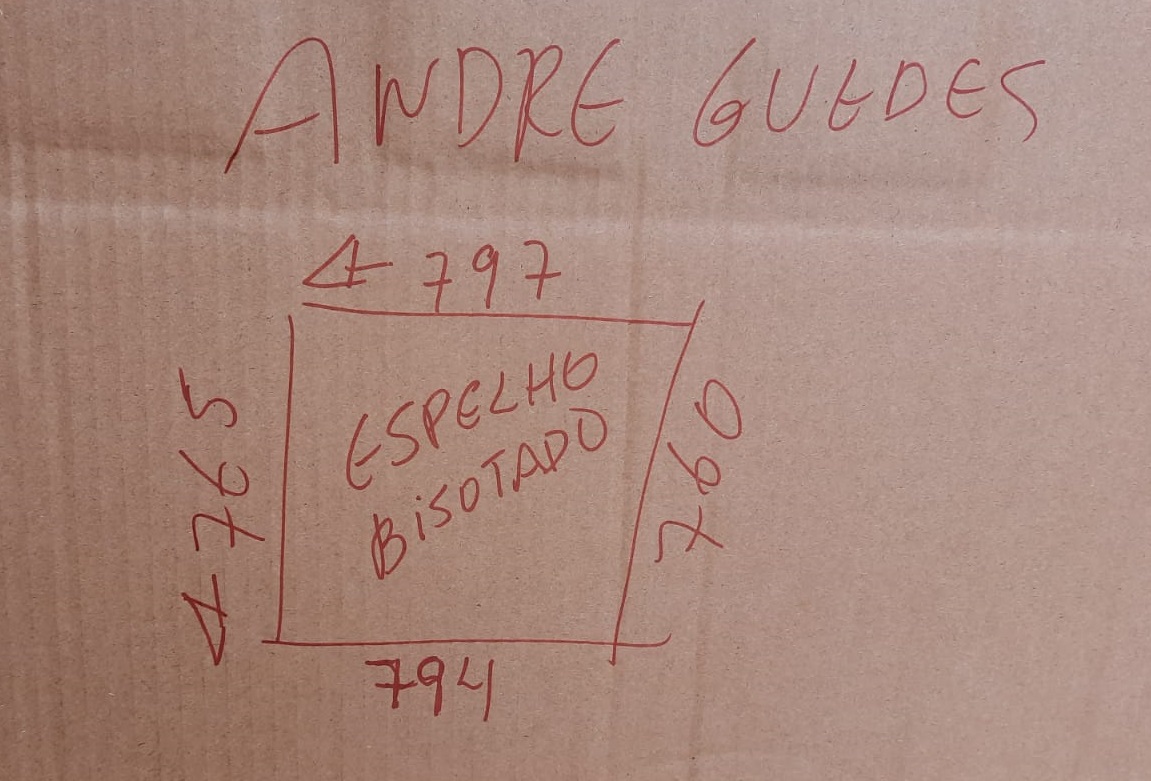 ANDRE GUEDES
797
765
ESPELHO
BISOTADO
760
794